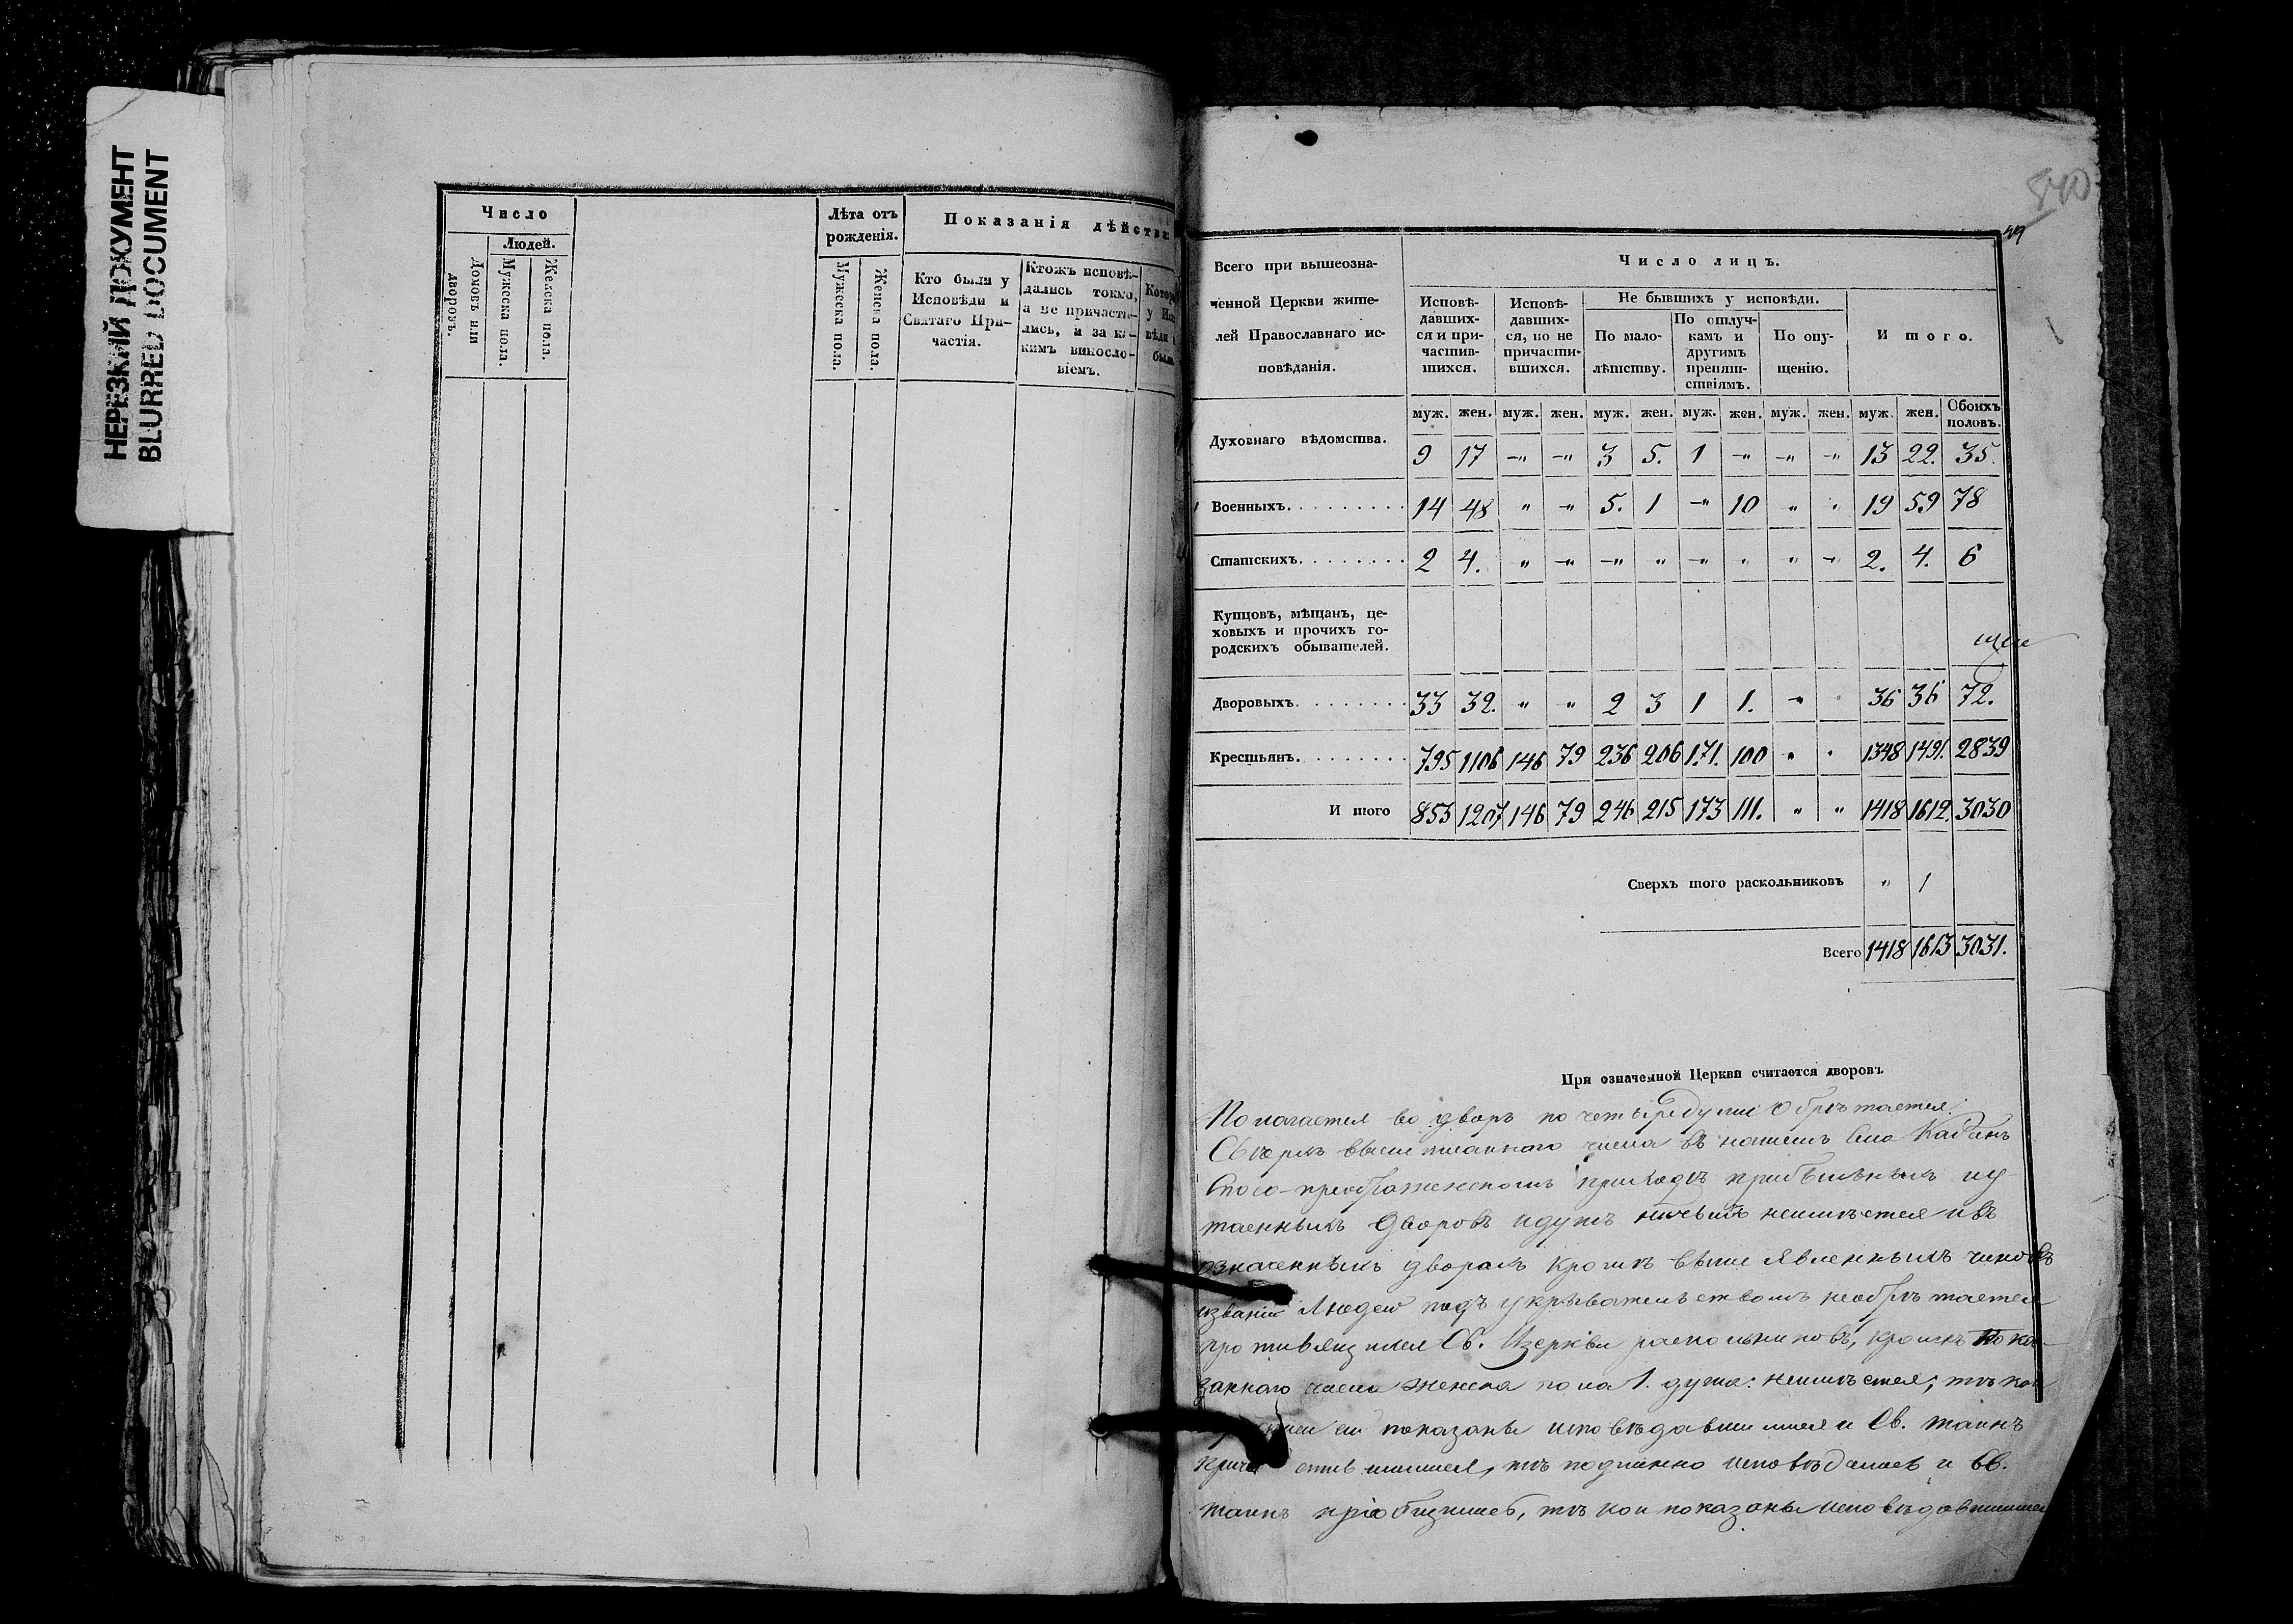 НЕРЕЗКИЙ ДОКУМЕНТ
BLURRED DOCUMENT
Число
Людей.
Домовъ или дворовъ.
Мужеска пола.
Женска пола.
Лѣта отъ рожденія.
Мужеска пола.
Женска пола.
Показанія дѣйства
Кто были у Исповѣди и Святаго При-частія.
Ктожъ исповѣ-дались токмо, а не причасти-лись, и за ка-кимъ винословіемъ.
540
49
Всего при вышеозна-
ченной Церкви жите-
лей Православнаго ис-
повѣданія.
Число лицъ.
Исповѣ-давших-ся и при-частив-шихся.
Исповѣ-давших-ся, но не причасти-вшихся.
Не бывшихъ у исповѣди.
По мало-лѣтству.
По отлуч-камъ и другимъ препят-ствіямъ.
По опу-щенію.
И того.
муж. жен. муж. жен. муж. жен. муж. жен. муж. жен. муж. жен. Обоихъ половъ.
Духовнаго вѣдомства. 9 17 -„ -„ 3 5. 1 -„ -„ -„ 13 22. 35.
Военныхъ. 14 48 „ -„ 5. 1 -„ 10 „ „ 19 59 78
Статскихъ. 2 4. „ -„ -„ „ -„ „ „ -„ 2. 4. 6
Купцовъ, мѣщанъ, це-
ховыхъ и прочихъ го-
родскихъ обывателей.
Дворовыхъ. 33 32. „ „ 2 3 1 1. „ „ 36 36 72.
Крестьянъ. 795 1106 146 79 236 206 171. 100 „ „ 1348 1491. 2839
И того 853 1207 146 79 246 215 173 111. „ „ 1418 1612. 3030
Сверхъ того раскольниковъ „ 1
Всего 1418 1613 3031.
При означенной Церкви считается дворовъ
Полагается во дворъ по четыре души обрѣтается.
Сверхъ вышеписаннаго числа въ нашемъ
Спасо-преображенскомъ приходѣ прибылыхъ и у
таенныхъ дворовъ и душъ ничьихъ неимѣется и въ
означенныхъ дворахъ кромѣ выше явленныхъ чиновъ
и званій людей подъ укрывательствомъ необрѣтается
противящихся Св. Церкви раскольниковъ, кромѣ пока-
заннаго числа женска пола 1. душа: неимѣется; тѣ кои
показаны исповѣдавшимися и Св. таинъ
причастившимися, тѣ подлинно исповѣдались и Св.
таинъ пріобщились, тѣ кои показаны исповѣдавшимися